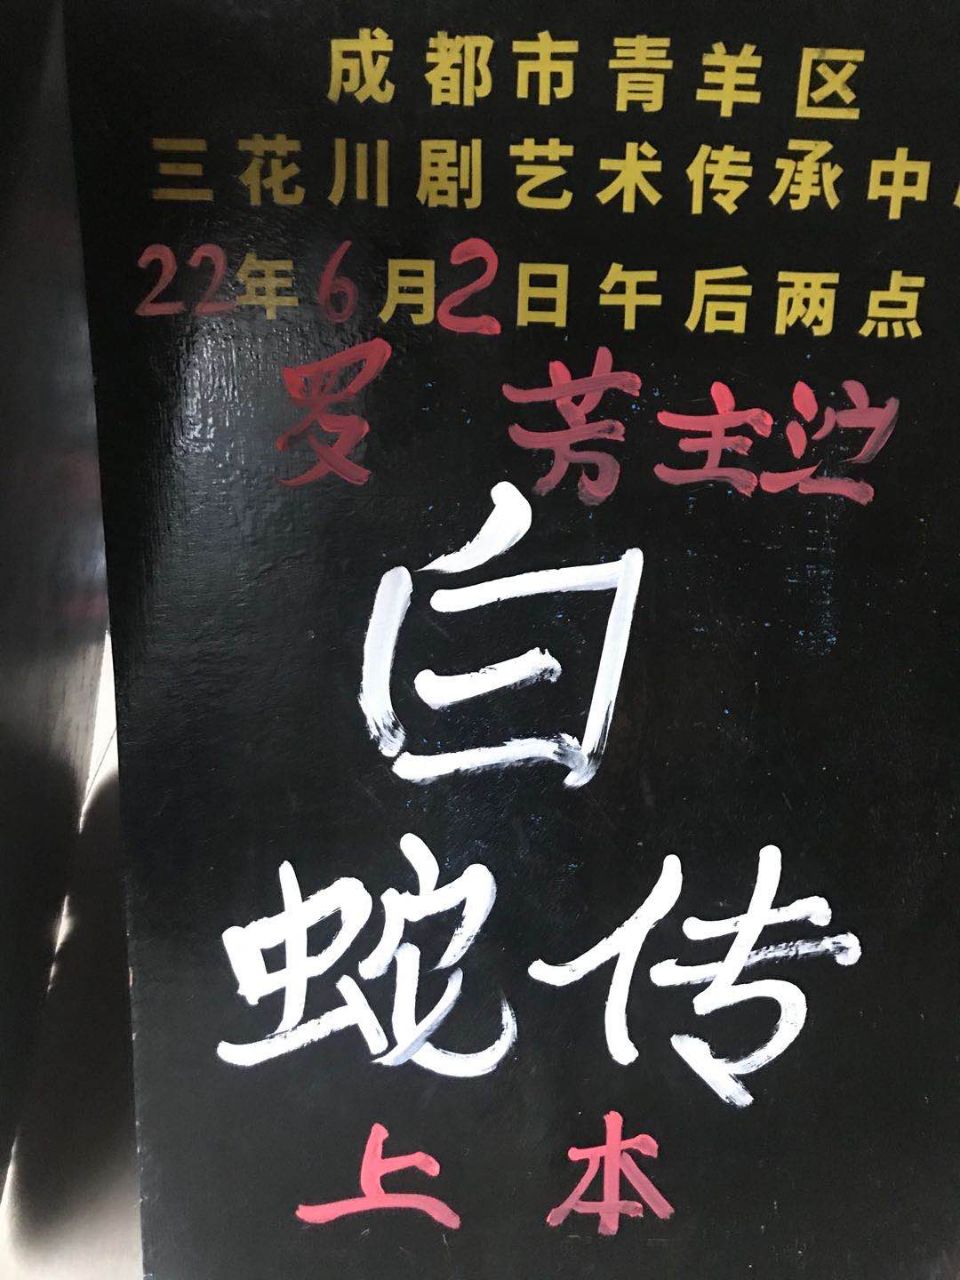 成都市青羊区
三花川剧艺术传承中
22年6月2日午后两点
罗 芳主
白
蛇传
上本